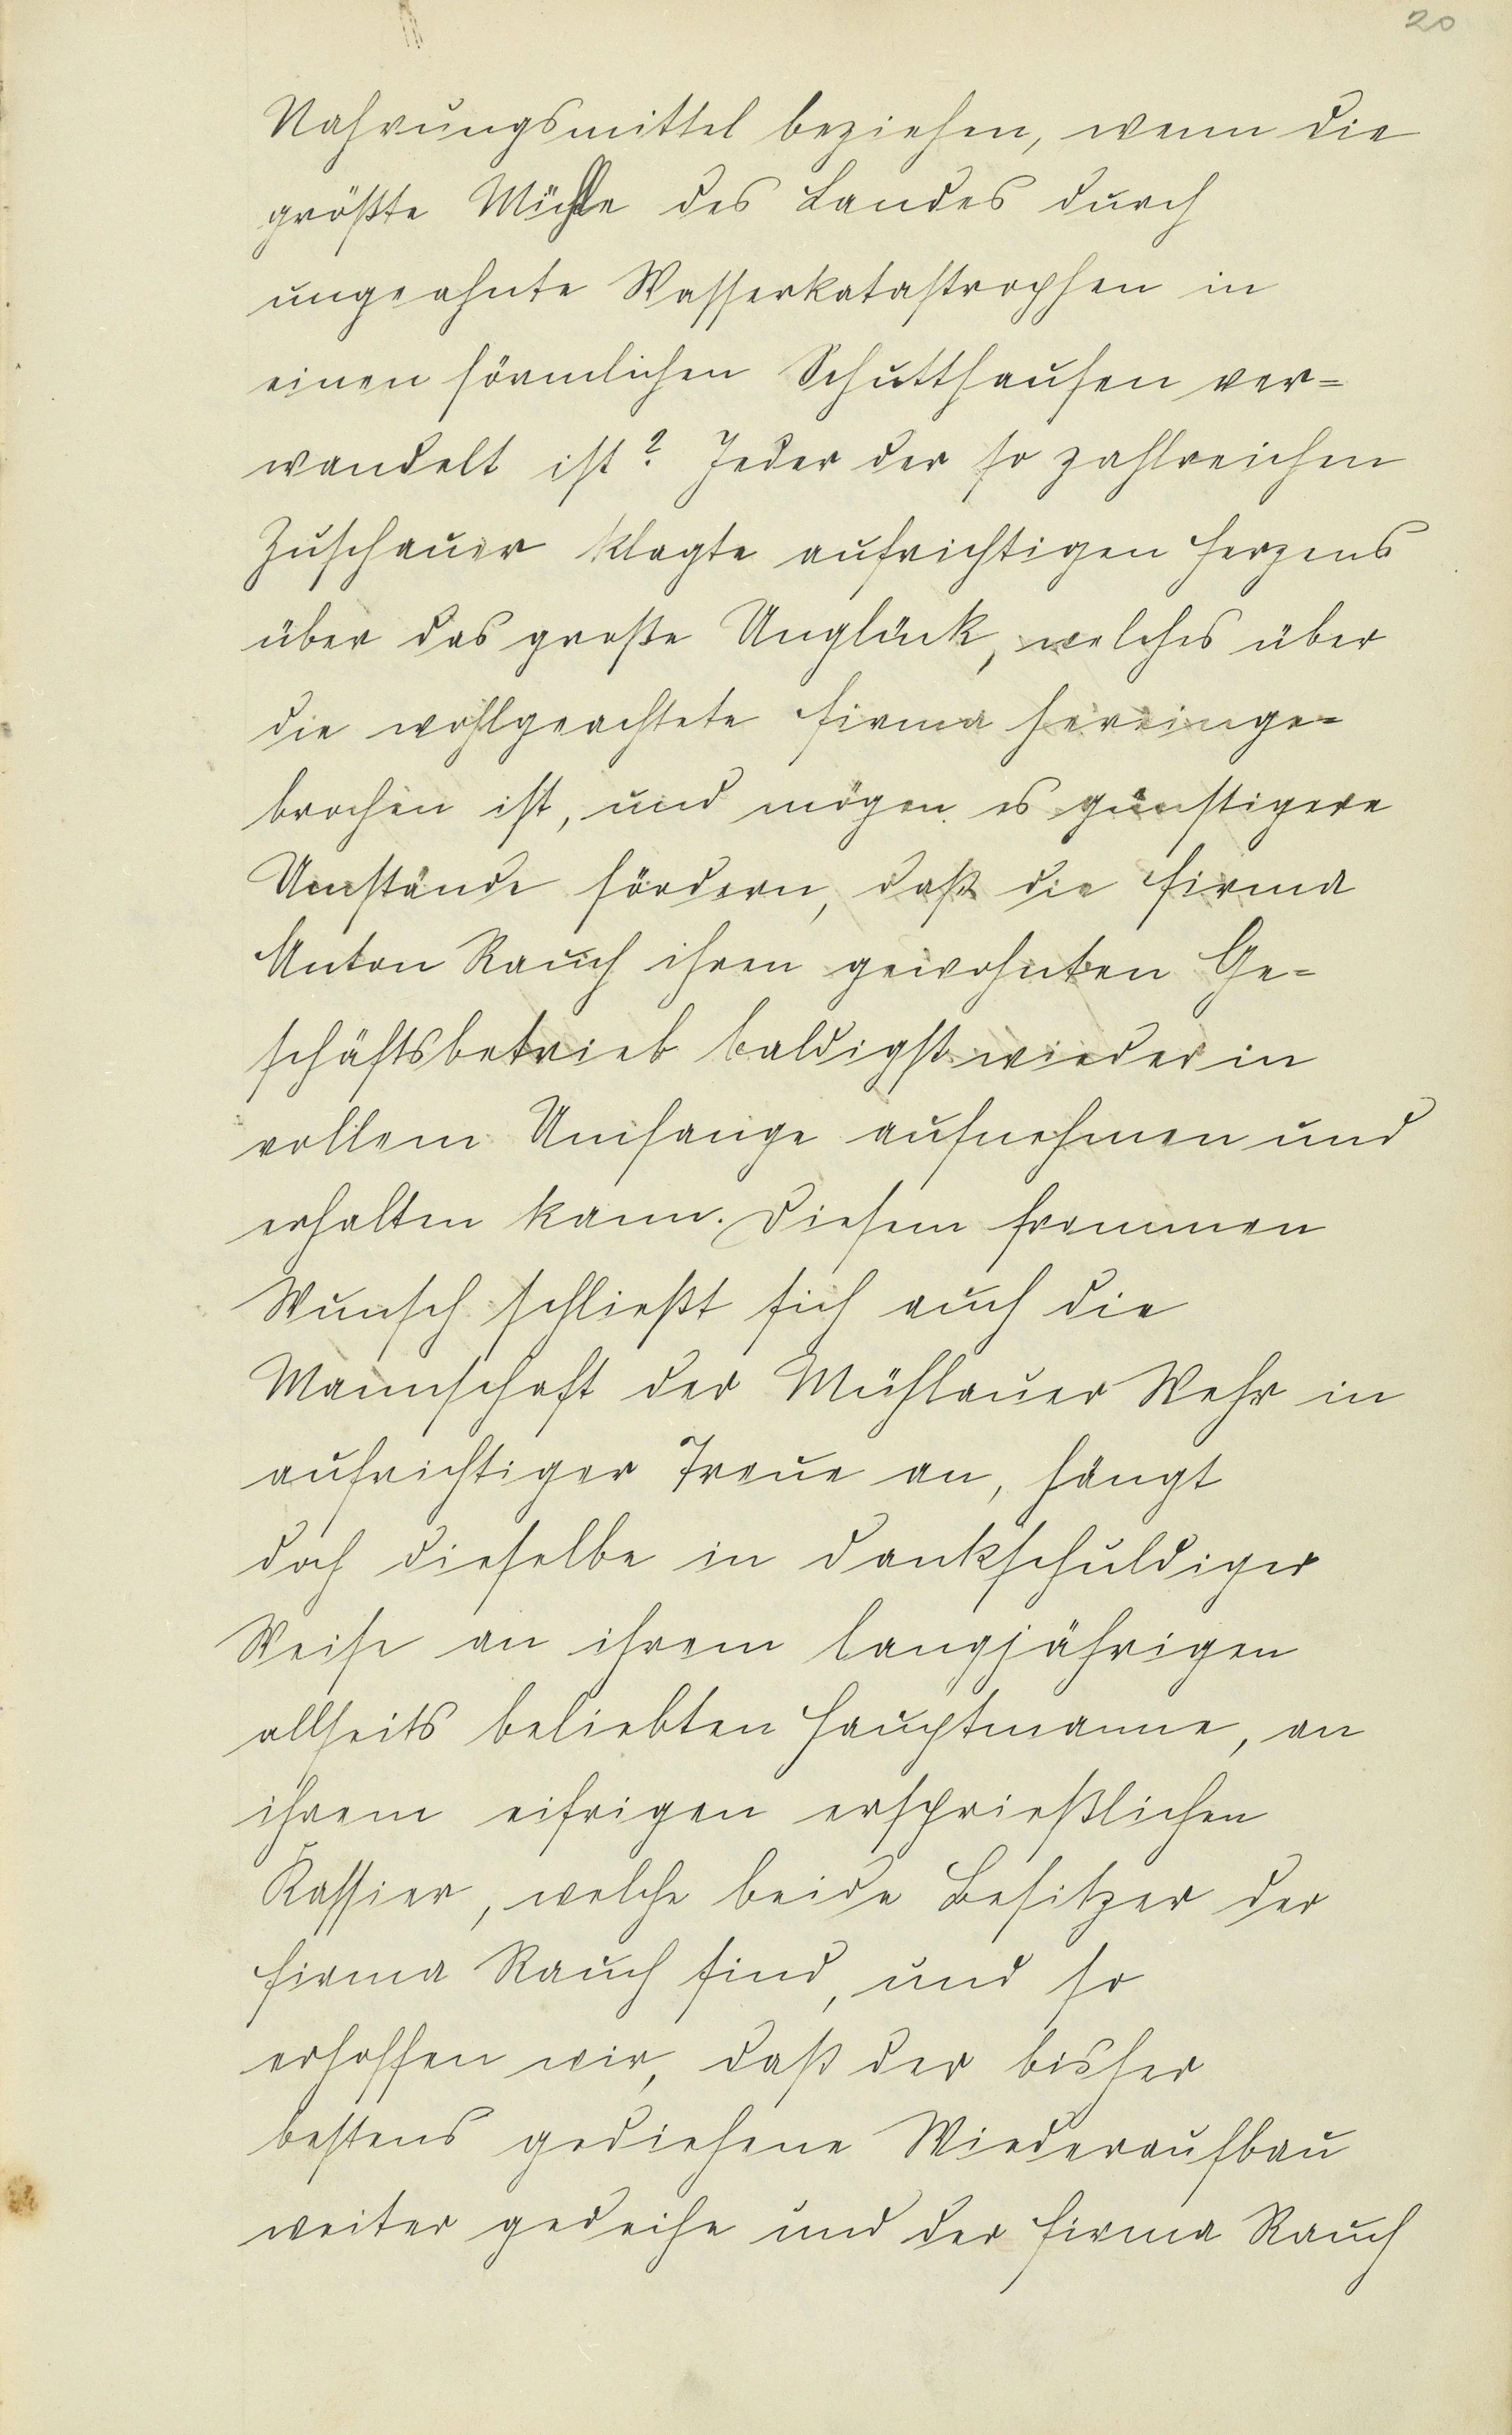 20
Nahrungsmittel beziehen, wenn die
größte Mühle des Landes durch
ungeahnte Wasserkatastrophen in
einen förmlichen Schutthaufen ver=
wandelt ist? Jeder der so zahlreichen
Zuschauer klagte aufrichtigen Herzens
über das große Unglück, welches über
die wohlgeachtete Firma hereinge=
brochen ist, und mögen es günstigere
Umstände fördern, daß die Firma
Anton Rauch ihren gewohnten Ge=
schäftsbetrieb baldigst wieder in
vollem Umfange aufnehmen und
erhalten kann. Diesem frommen
Wunsch schließt sich auch die
Mannschaft der Mühlauer Wehr in
aufrichtiger Treue an, hängt
doch dieselbe in dankschuldiger
Weise an ihrem langjährigen
allseits beliebten Hauptmanne, an
ihrem eifrigen ersprießlichen
Kassier, welche beide Besitzer der
Firma Rauch sind, und so
erhoffen wir, daß der bisher
bestens gediehene Wiederaufbau
weiter gedeihe und der Firma Rauch